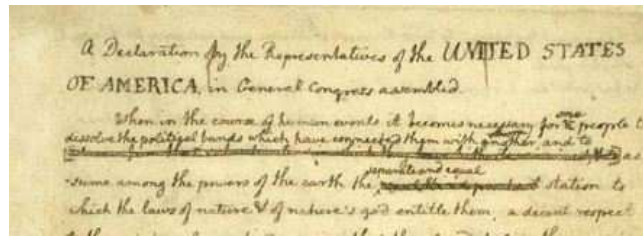 A Declaration by the Representatives of the UNITED STATES
OF AMERICA, in General Congress assembled.
When in the course of human events it becomes necessary for one people to
dissolve the political bands which have connected them with another, and to
as-
separate and equal
-sume among the powers of the earth the station to
which the laws of nature & of nature's god entitle them, a decent respect